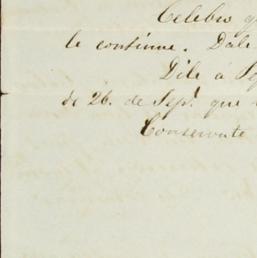 Celebro q
le continue. Dále
Díle á Pe
de 26. de Sepe. que
Conservate